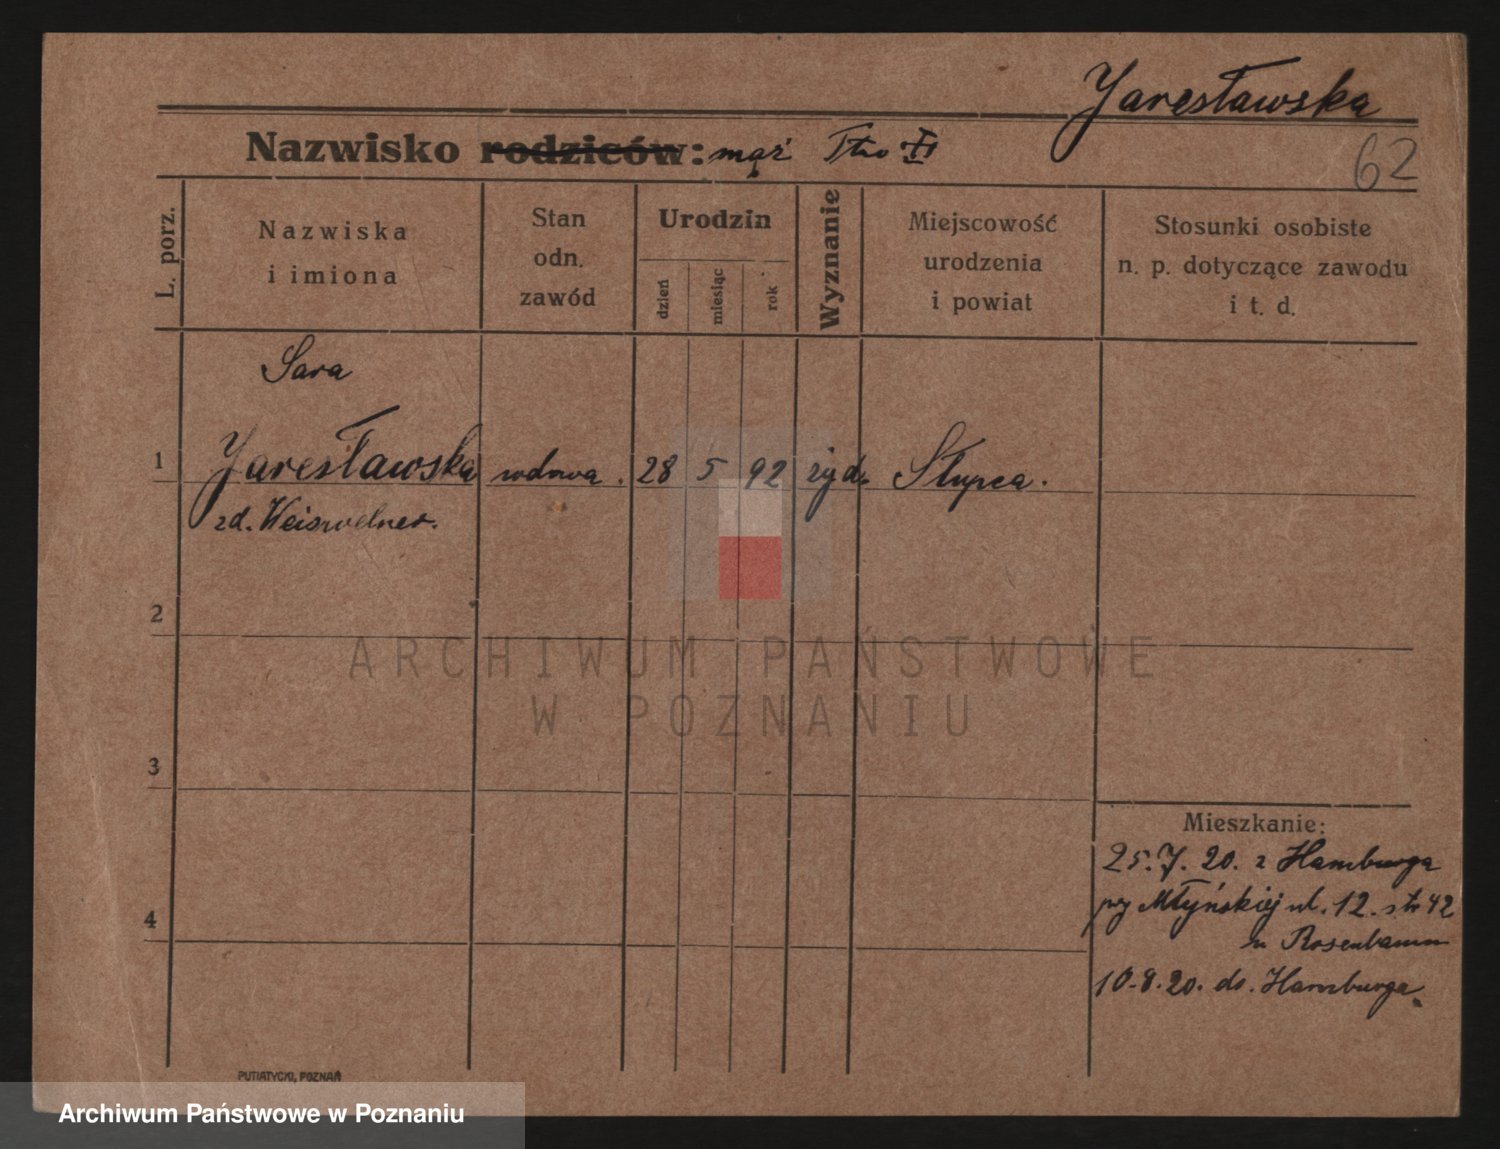 Jaresławska
62
Nazwisko rodziców: mąż
L. porz.
Nazwiska
i imiona
Stan
odn.
zawód
Urodzin
dzień
miesiąc
rok
Wyznanie
Miejscowość
urodzenia
i powiat
Stosunki osobiste
n. p. dotyczące zawodu
i t. d.
Sara
1 Jaresławska wdowa. 28 5 92 żyd. Słupca.
zd.
2
ARCHIWUM PAŃSTWOWE
W POZNANIU
3
Mieszkanie:
25.7.20. z Hamburga
4
przy Młyńskiej ul. 12. 42
u Rosenbaum
10.8.20. do. Hamburga.
PUTIATYCKI, POZNAŃ
Archiwum Państwowe w Poznaniu